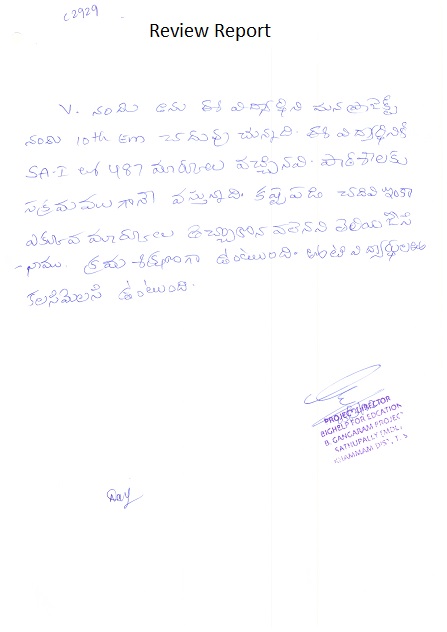 C2929
Review Report
V. నంది అను ఈ విద్యార్థిని మన ప్రాజెక్ట్
నందు 10th Em చదువు చున్నది. ఈ విద్యార్థినికి
SA-I లో 487 మార్కులు వచ్చినవి. పాఠశాలకు
సక్రమముగానే వస్తున్నది. కష్టపడి చదివి ఇంకా
ఎక్కువ మార్కులు తెచ్చుకోవలెనని తెలియజేసి
-నాము. క్రమశిక్షణగా ఉంటుంది. తోటి విద్యార్థులతో
కలసిమెలసి ఉంటుంది.
PROJECT DIRECTOR
BIGHELP FOR EDCATION
B. GANGARAM PROJECT
SATHUPALLY (MDL)
KHAMMAM DIST, T.S